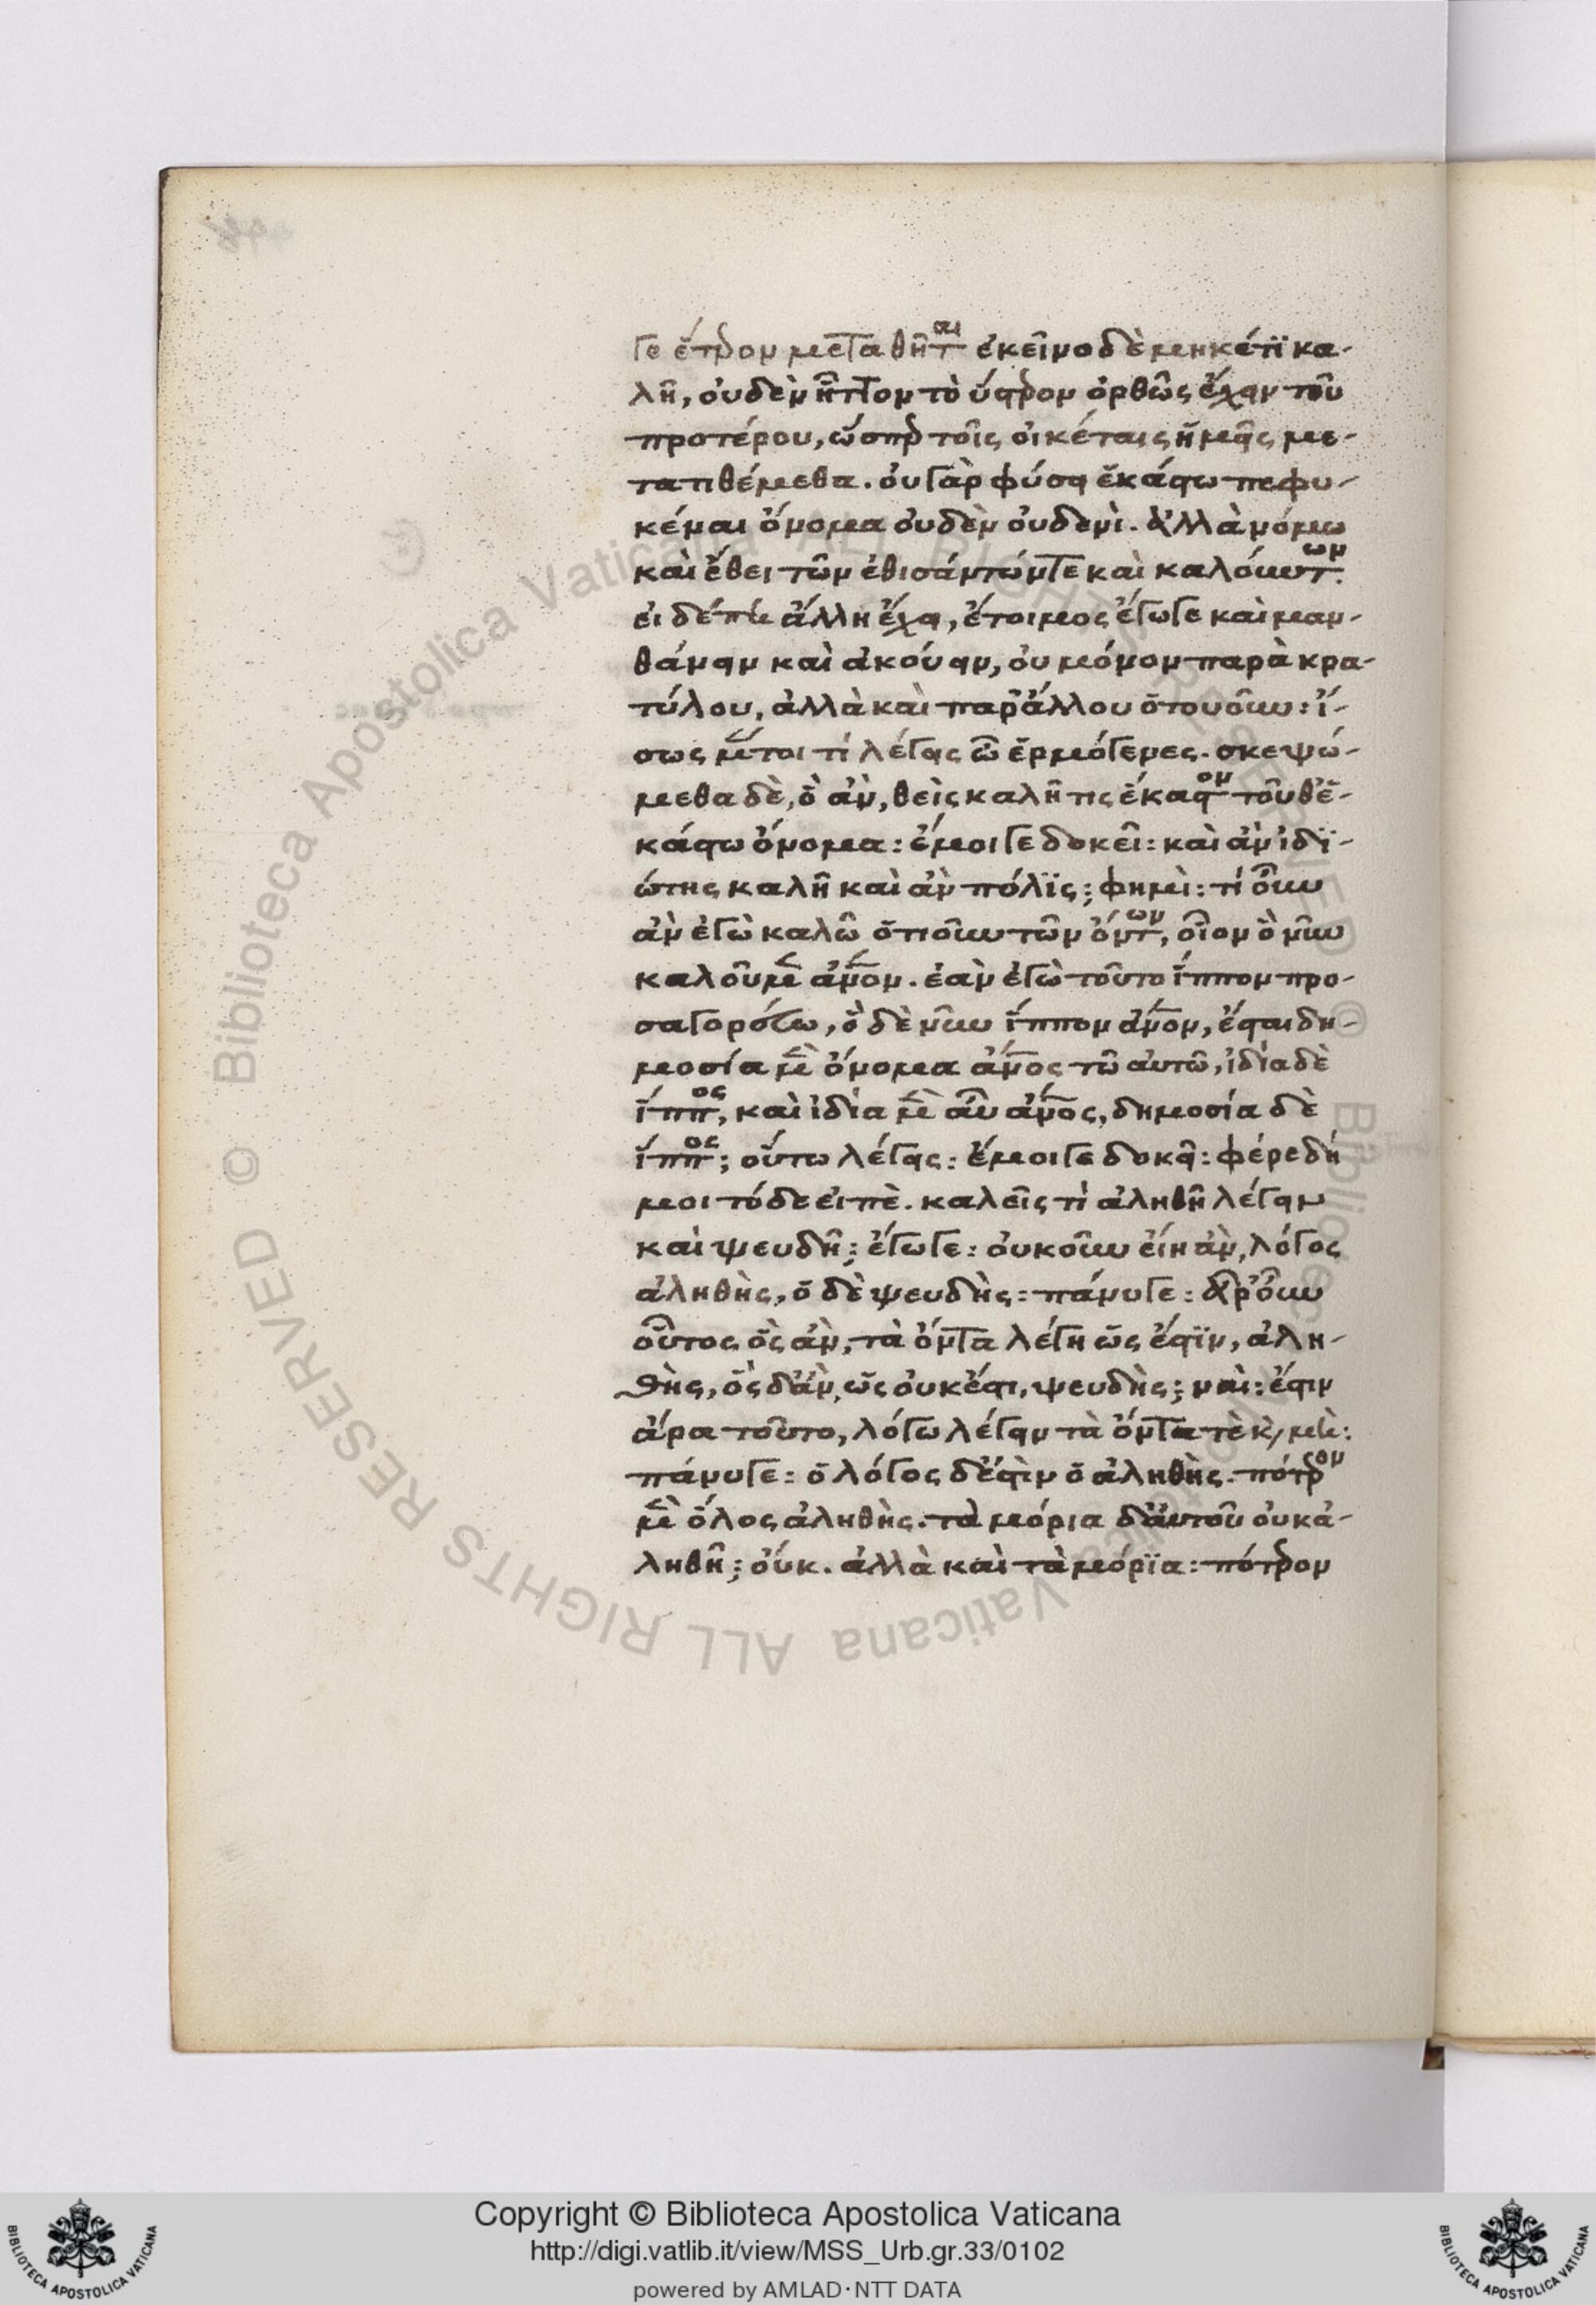 γε ἕτερον μεταθῆται ἐκεῖνο δὲ μηκέτϊ κα-
λῆ, οὐδὲν ἧττον τὸ ὕστερον ὀρθῶς ἔχειν τοῦ
προτέρου, ὥσπερ τοῖς οἰκέταις ἡμεῖς με-
τατιθέμεθα. οὐ γὰρ φύσει ἑκάστω πεφυ-
κέναι ὄνομα οὐδὲν οὐδενὶ. ἀλλὰ νόμω
καὶ ἔθει τῶν ἐθισάντων τε καὶ καλούντων.
εἰ δέ πη ἄλλη ἔχει, ἕτοιμος ἔγωγε καὶ μαν-
θάνειν καὶ ἀκούειν, οὐ μόνον παρὰ κρα-
τύλου, ἀλλὰ καὶ παρ' ἄλλου ὁτουοῦν: ἴ-
σως μέντοι τί λέγεις ὦ ἑρμόγενες. σκεψώ-
μεθα δὲ, ὃ ἂν, θεὶς καλῆ τις ἕκαστον τοῦθ' ἑ-
κάστω ὄνομα: ἔμοιγε δοκεῖ: καὶ ἂν ἰδϊ-
ώτης καλῆ καὶ ἂν πόλϊς; φημὶ: τί οὖν
ἂν ἐγὼ καλῶ ὁτιοῦν τῶν ὄντων, οἷον ὃ νῦν
καλοῦμεν ἄνον. ἐὰν ἐγὼ τοῦτο ἵππον προ-
σαγορεύω, ὃ δὲ νῦν ἵππον ἄνον, ἔσται δη-
μοσία μὲν ὄνομα ἄνος τῶ αὐτῶ, ἰδία δὲ
ἵππος, καὶ ἰδία μὲν αὖ ἄνος, δημοσία δὲ
ἵππος; οὕτω λέγεις: ἔμοιγε δοκεῖ: φέρε δή
μοι τόδε εἰπὲ. καλεῖς τὶ ἀληθῆ λέγειν
καὶ ψευδῆ; ἔγωγε: οὐκοῦν εἴη ἂν, λόγος
ἀληθὴς, ὁ δὲ ψευδὴς: πάνυ γε: ἆρ' οὖν
οὗτος ὃς ἂν, τὰ ὄντα λέγη ὡς ἔστϊν, ἀλη-
θὴς, ὃς δ' ἂν, ὡς οὐκ ἔστι, ψευδὴς; ναὶ: ἔστιν
ἄρα τοῦτο, λόγω λέγειν τὰ ὄντα τὲ κ, μὴ:
πάνυ γε: ὁ λόγος δ' ἐστὶν ὁ ἀληθὴς. πότερον
μὲν ὅλος ἀληθὴς. τὰ μόρια δ' αὐτοῦ οὐκ ἀ-
ληθῆ; οὔκ. ἀλλὰ καὶ τὰ μόρϊα: πότερον
Copyright © Biblioteca Apostolica Vaticana
http://digi.vatlib.it/view/MSS_Urb.gr.33/0102
powered by AMLAD·NTT DATA